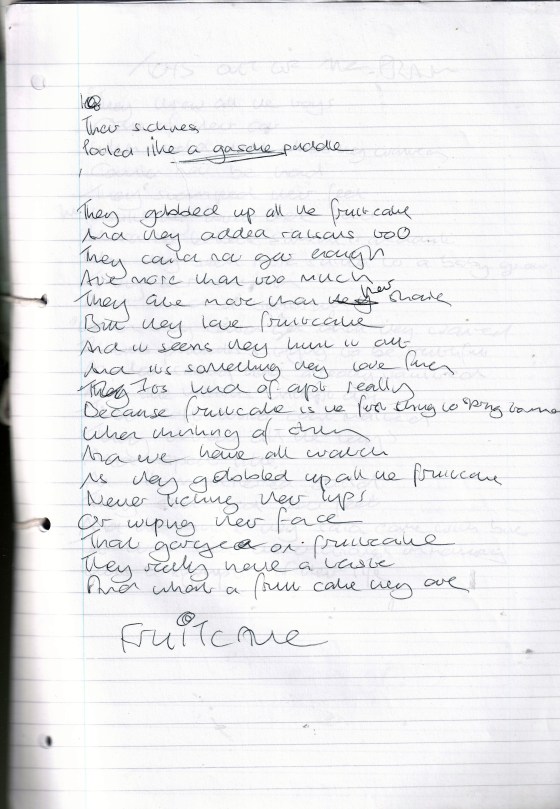 Their sickness
Pooled like a gasoline puddle
They gobbled up all the fruitcake
And they added raisins too
They could not get enough
Ate more than too much
They ate more than their share
But they love fruitcake
And it seems they hunt it out
And it's something they love
It's kind of apt really
Because fruitcake is the first thing to spring to mind
When thinking of them
And we have all watch
As they gobbled up all the fruitcake
Never licking their lips
Or wiping their face
That gorge on fruitcake
They really have a taste
And what a fruit cake they are
Fruitcake